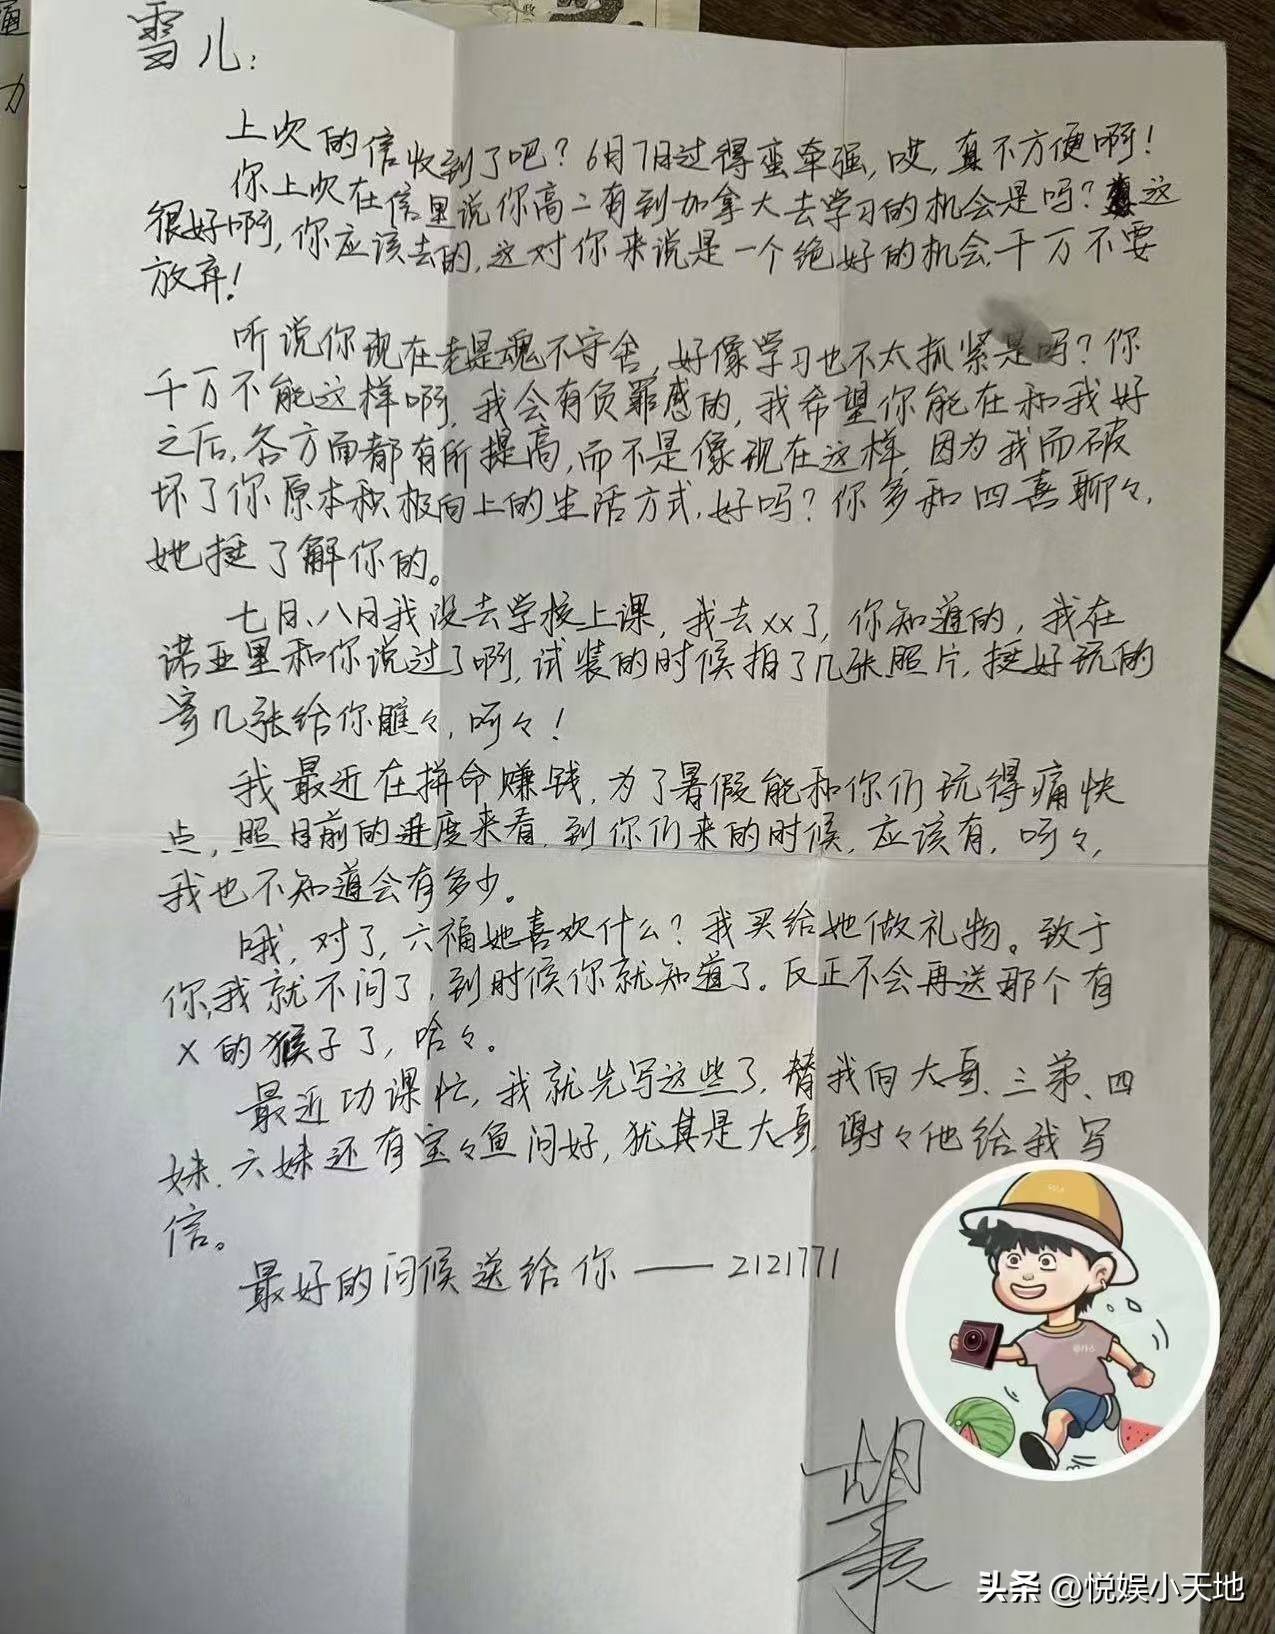 雪儿：
上次的信收到了吧？6月7日过得蛮牵强，哎，真不方便啊！
你上次在信里说你高二有到加拿大去学习的机会是吗？这
很好啊，你应该去的，这对你来说是一个绝好的机会，千万不要
放弃！
听说你现在老是魂不守舍，好像学习也不太抓紧是吗？你
千万不能这样啊，我会有负罪感的，我希望你能在和我好
之后，各方面都有所提高，而不是像现在这样，因为我而破
坏了你原本积极向上的生活方式，好吗？你多和四喜聊々，
她挺了解你的。
七月、八月我没去学校上课，我去xx了，你知道的，我在
诺亚里和你说过了啊，试装的时候拍了几张照片，挺好玩的
寄几张给你瞧々，呵々！
我最近在拼命赚钱，为了暑假能和你们玩得痛快
点，照目前的进度来看，到你们来的时候，应该有，呵々，
我也不知道会有多少。
哦，对了，六福她喜欢什么？我买给她做礼物。致于
你，我就不问了，到时候你就知道了。反正不会再送那个有
X的猴子了，哈々。
最近功课忙，我就先写这些了，替我向大哥、三弟、四
妹、六妹还有宝々鱼问好，犹其是大哥，谢々他给我写
信。
最好的问候送给你——2121771
胡
头条 @悦娱小天地